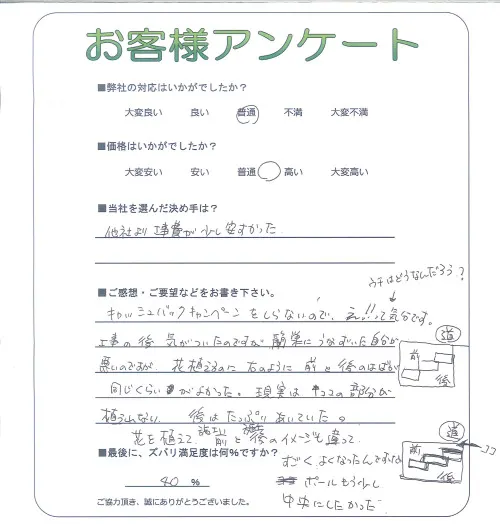 お客様アンケート
■弊社の対応はいかがでしたか？
大変良い 良い 普通 不満 大変不満
■価格はいかがでしたか？
大変安い 安い 普通 高い 大変高い
■当社を選んだ決め手は？
他社より工事費が少し安すかった
ウチはどうなんだろう？
■ご感想・ご要望などをお書き下さい。
キャッシュバックキャンペーンをしらないので、え!!って気分です。
工事の後 気がついたのですが 簡単にうなずいた自分が
悪いのですが 花植えるのに 右のように 前と後のはばが
同じくらいがよかった。現実は ココの部分が
植えれない 後はたっぷりあいていた。
花を植えて 前と後のイメージも違って
道
前
後
■最後に、ズバリ満足度は何％ですか？
すごく よくなったんですが
40 ％
ポールもう少し
中央にしたかった
ご協力頂き、誠にありがとうございました。
道
前
後
ココ